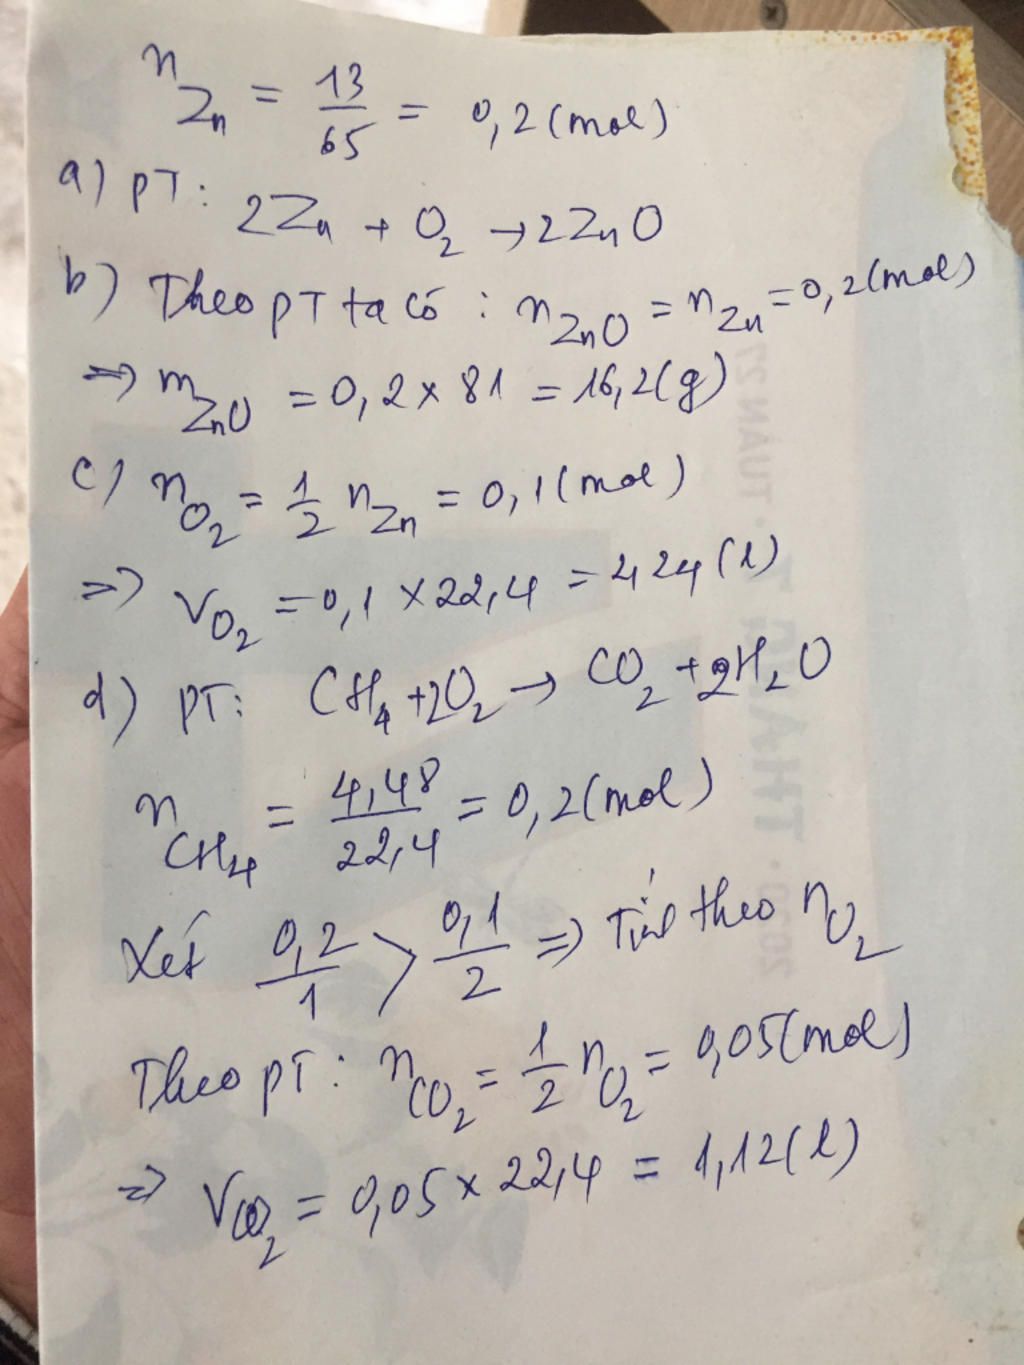 n_Zn = 13/65 = 0,2 (mol)
a) PT: 2Zn + O₂ → 2ZnO
b) Theo PT ta có : n_ZnO = n_Zn = 0,2 (mol)
=> m_ZnO = 0,2 × 81 = 16,2 (g)
c) n_O₂ = 1/2 n_Zn = 0,1 (mol)
=> V_O₂ = 0,1 × 22,4 = 2,24 (l)
d) PT: CH₄ + 2O₂ → CO₂ + 2H₂O
n_CH₄ = 4,48/22,4 = 0,2 (mol)
Xét 0,2/1 > 0,1/2 => Tính theo n_O₂
Theo PT: n_CO₂ = 1/2 n_O₂ = 0,05 (mol)
=> V_CO₂ = 0,05 × 22,4 = 1,12 (l)